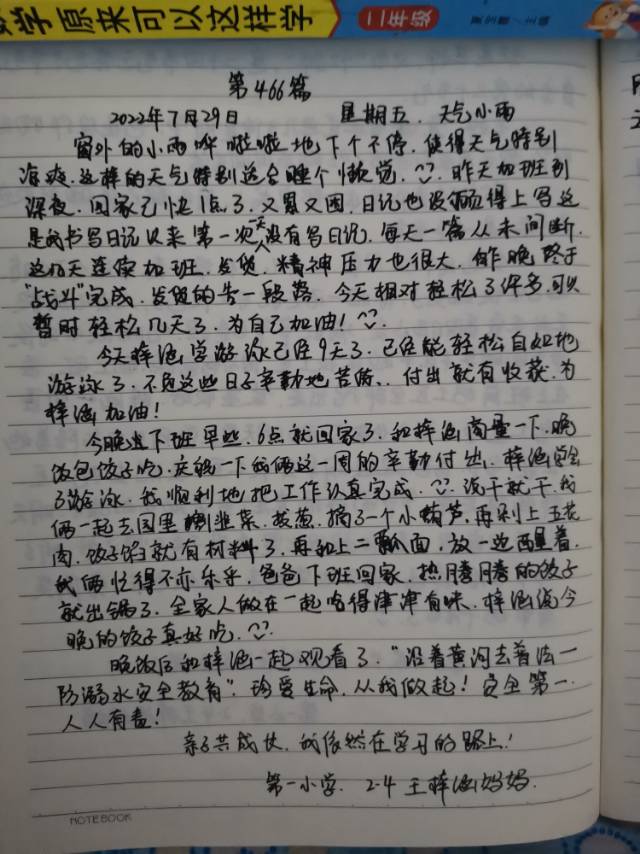 学原来可以这样学 二年级 夏 主编
第466篇
2022年7月29日 星期五. 天气小雨
窗外的小雨哗啦啦地下个不停. 使得天气特别
凉爽. 这样的天气特别适合睡个懒觉. 昨天加班到
深夜. 回家已快1点了. 又累又困. 日记也没顾得上写这
是我书写日记以来第一次一天没有写日记. 每天一篇从未间断.
这几天连续加班. 发货. 精神压力也很大. 昨晚终于
“战斗”完成. 发货的告一段落. 今天相对轻松了许多. 可以
暂时轻松几天了. 为自己加油!
今天梓涵学游泳已经9天了. 已经能轻松自如地
游泳了. 不负这些日子辛勤地苦练.. 付出就有收获. 为
梓涵加油!
今晚上下班早些. 6点就回家了. 和梓涵商量一下. 晚
饭包饺子吃. 庆祝一下我俩这一周的辛勤付出. 梓涵学会
了游泳. 我顺利地把工作认真完成. 说干就干. 我
俩一起去园里割韭菜. 拔葱. 摘了一个小葫芦. 再剁上五花
肉. 饺子馅就有材料了. 再和上二瓢面. 放一边醒着.
我俩忙得不亦乐乎. 爸爸下班回家. 热腾腾的饺子
就出锅了. 全家人做在一起吃得津津有味. 梓涵说今
晚的饺子真好吃.
晚饭后和梓涵一起观看了. “沿着黄河去普法一
防溺水安全教育”. 珍爱生命. 从我做起! 安全第一.
人人有责!
亲子共成长. 我依然在学习的路上!
第一小学. 2-4 王梓涵妈妈.
NOTEBOOK